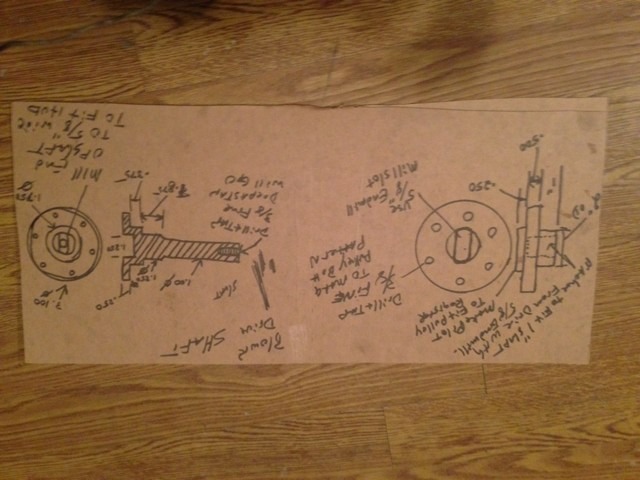 Mill End
OF SHAFT
TO 5/8" wide
TO FIT HUB
1.750
.375
.875
Drill + Tap
3/8 Fine
Deep as Tap
Will Go
1.250
.250
1.250
1.00 Ø
3.100 Ø
Slot
Blower
Drive
SHAFT
Use
5/8 Endmill
Mill slot
Drill + Tap
3/8 Fine
TO Match
Pulley Bolt
Pattern
.500
.250
1"
2" OD
to Fit 1" shaft
From Drive with
5/8 Endmill
Make Pilot
To Fit Pulley
Register